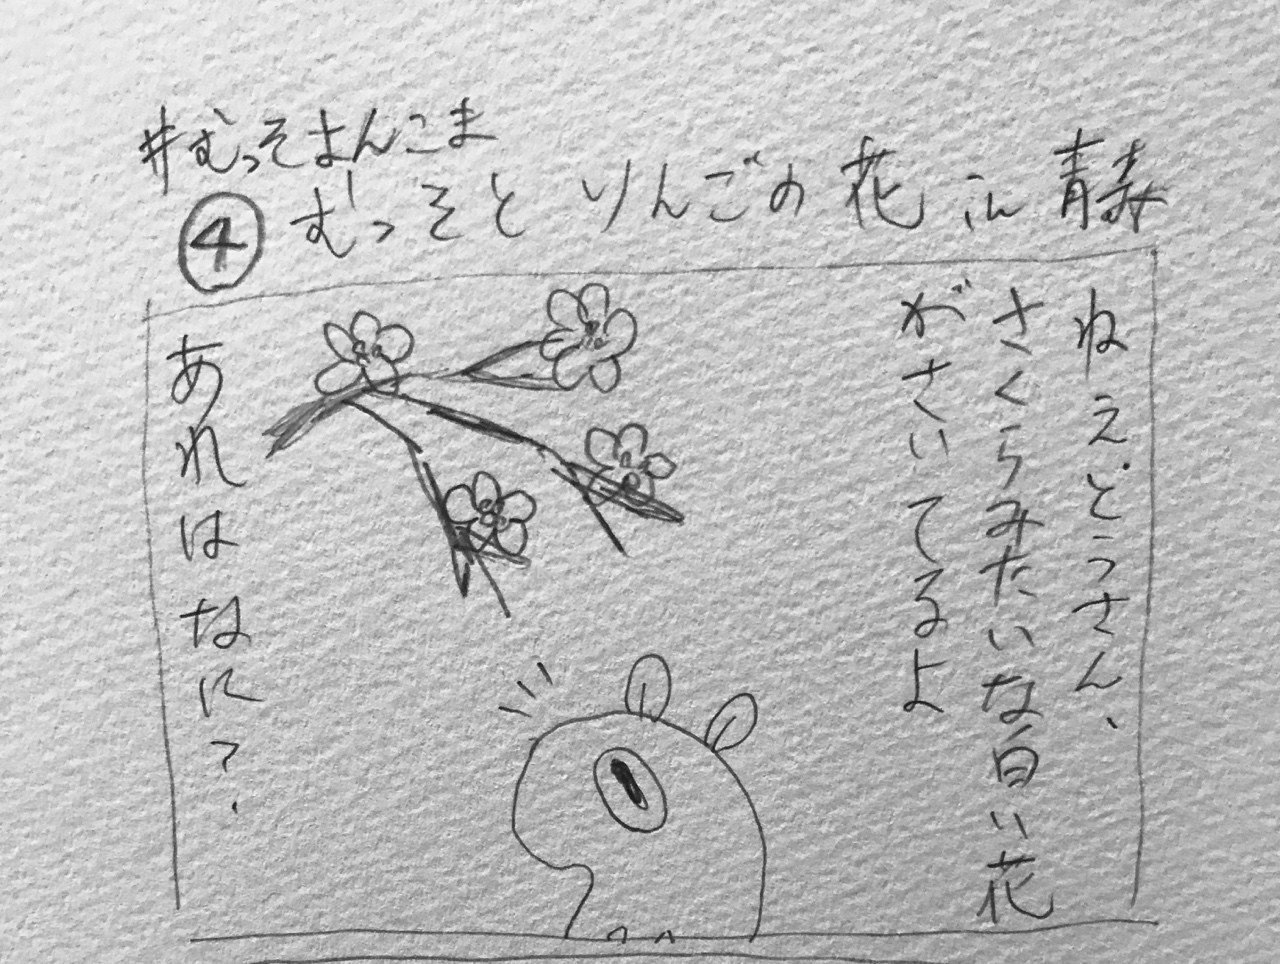 #むっそよんこま
④むっそとりんごの花 in 青森
ねぇとうさん、
さくらみたいな白い花
がさいてるよ
あれはなに?